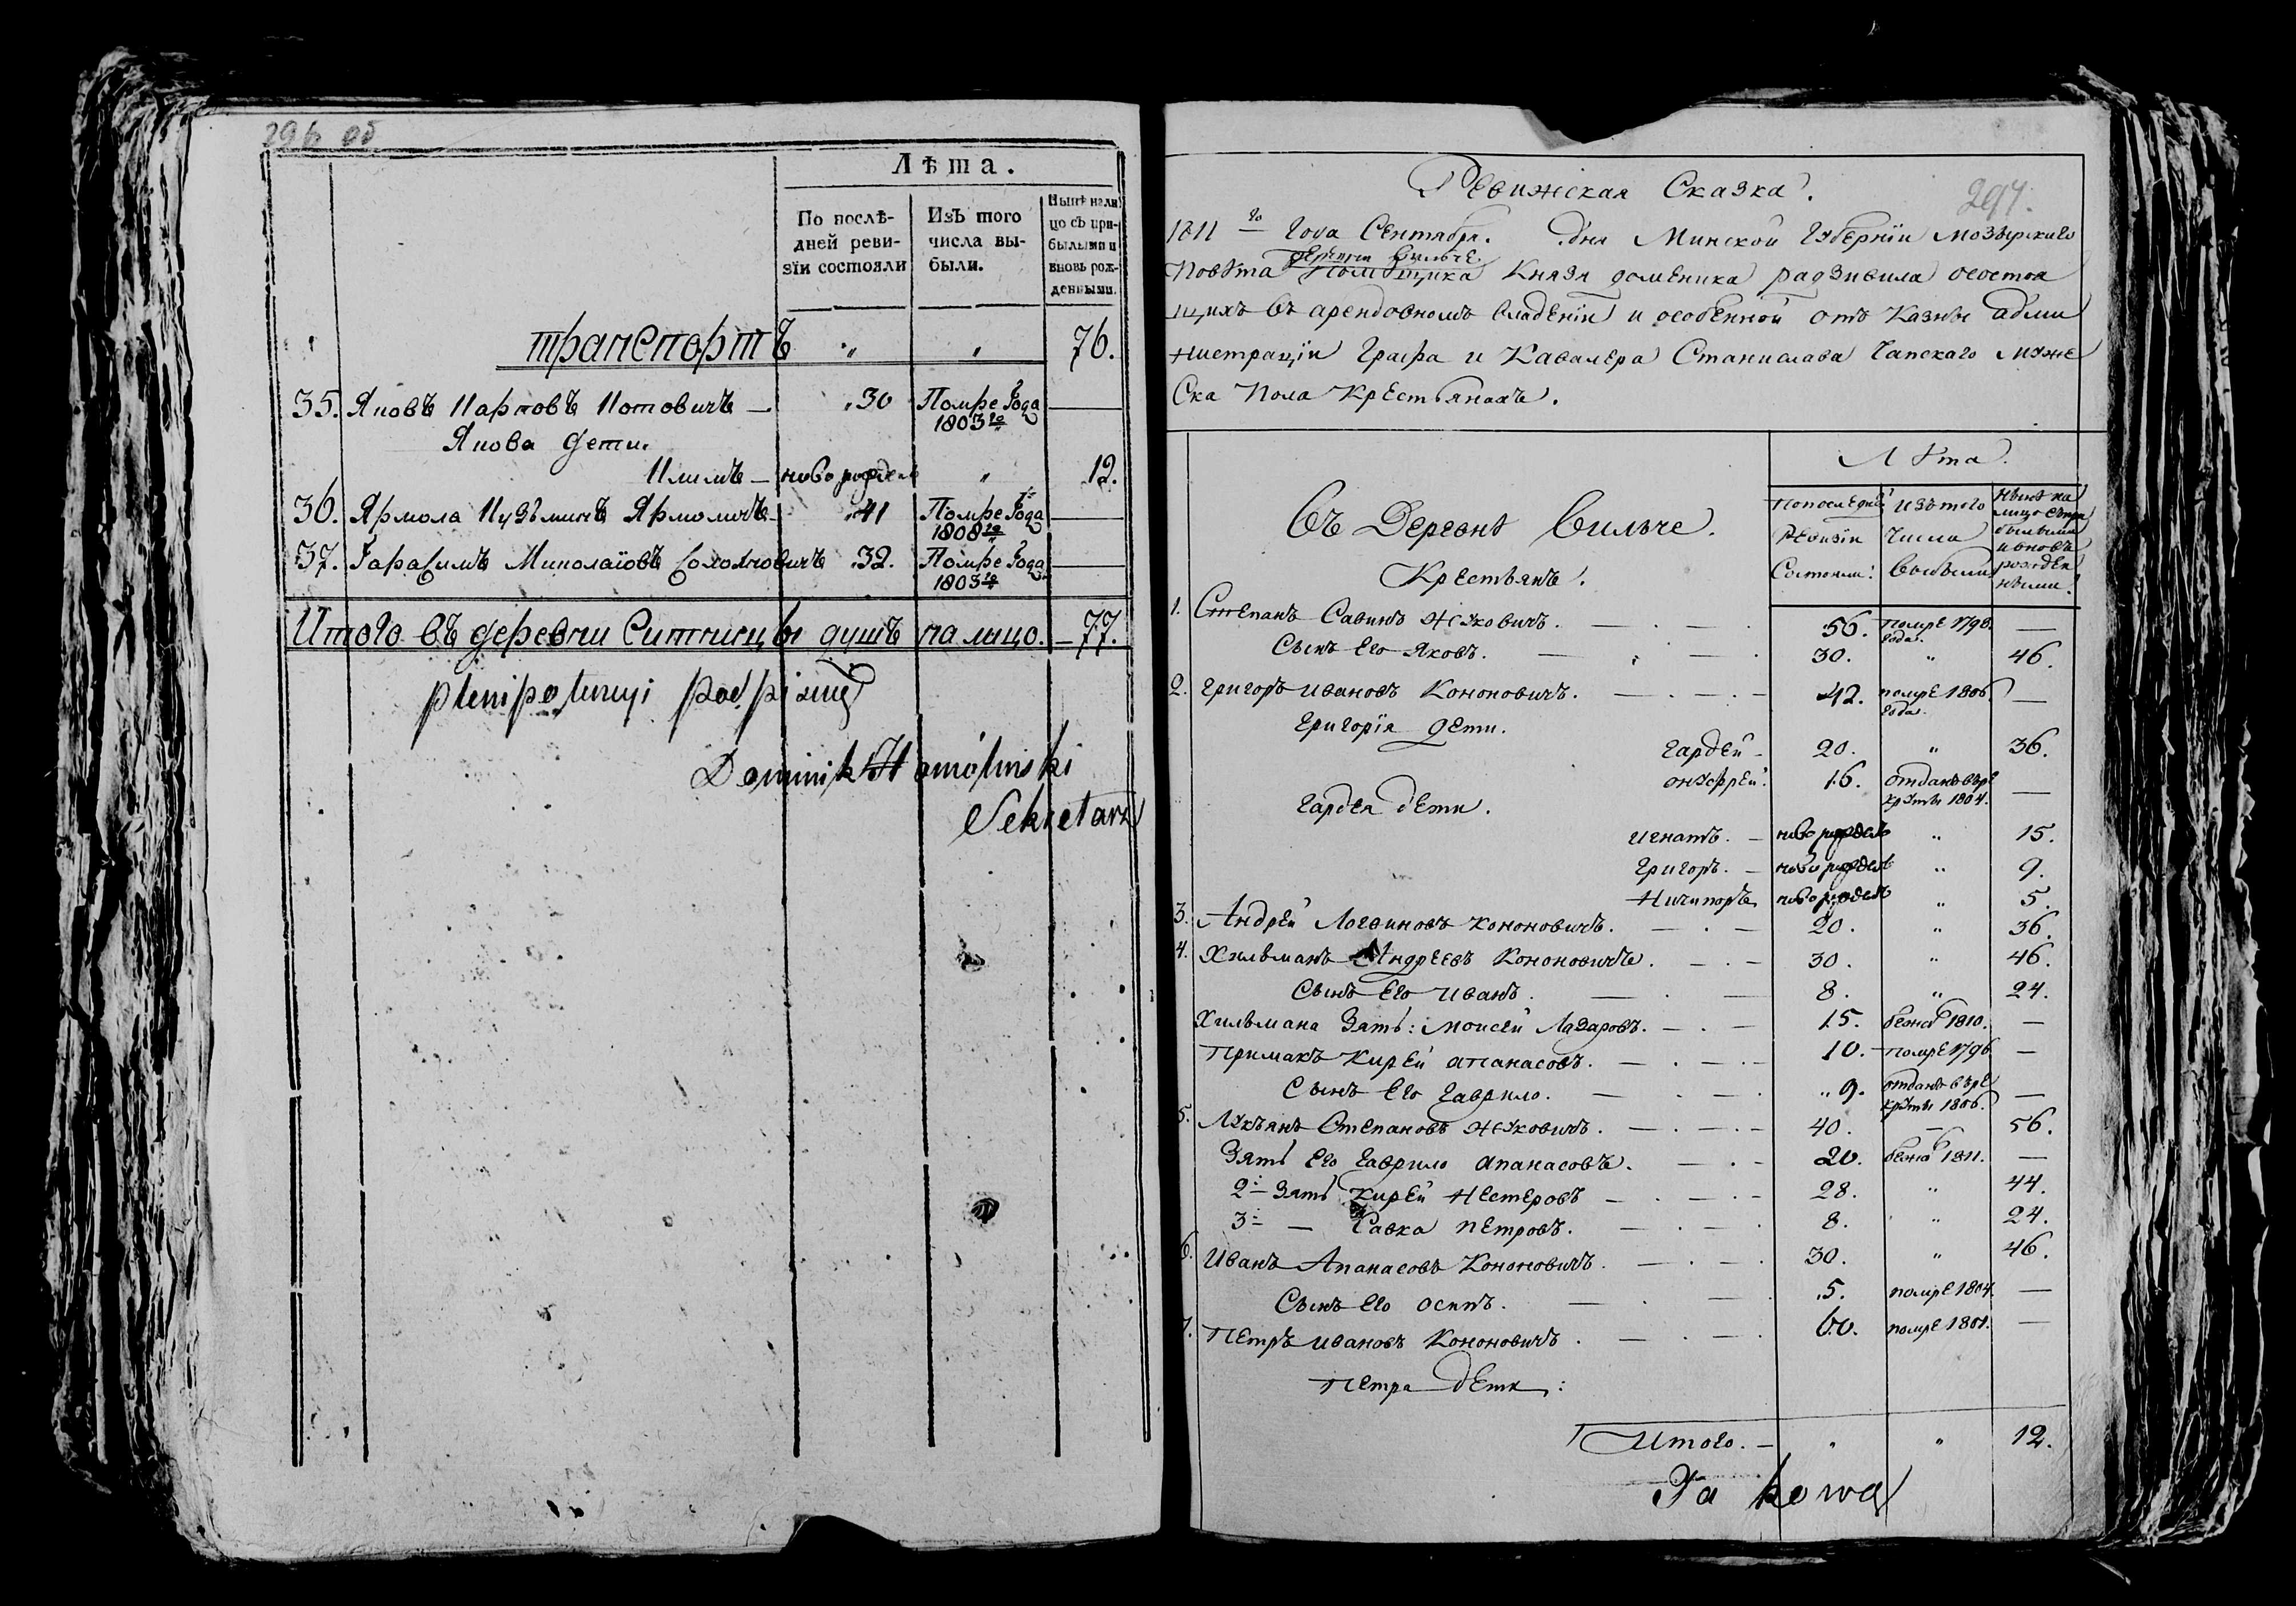 296 об
Лѣта.
По послѣ-
дней реви-
зіи состояли
Изъ того
числа вы-
были.
Нынѣ нали
цо съ при-
былыми и
вновь рож-
денными.
транспортъ " " 76.
35. Яковъ Карповъ Котовичъ — 30 Помре Года 1803го —
Якова дети
Климъ — новорожденъ " 12.
36. Ярмола Кузьминъ Ярмоличъ — 41 Помре Года 1808го —
37. Гарасимъ Миколаіовъ 32. Помре Года 1803го —
Итого въ деревни Ситницы душъ налицо. — 77.
plenipotencyi podpisuię
Dominik
Sekretarz
297.
Ревижская Сказка.
1811го Года Сентября. дня Минской Губерніи Мозырскаго
деревни Вильче
Повѣта Помѣщика Князя доменика радзивила состоя
щихъ въ арендовномъ владеніи и особенной отъ Казны адми
нистраціи Графа и Кавалера Станислава Чапскаго муже
ска Пола Крестьянахъ.
Лѣта.
Въ Деревнѣ Вильче.
Крестьянъ.
Попоследней
Ревизіи
Состояли.
изътого
Числа
Выбыли
Нынѣ на
лицо съпри
былыми
ивновь
рожден
ными.
1. Степанъ Савинъ Жуковичъ. — 56. помре 1798. года. —
Сынъ Его Яковъ. — 30. " 46.
2. Григоръ Ивановъ Кононовичъ. — 42. помре 1806. года. —
Григорія дети.
Гардей — 20. " 36.
Онуфрей. 16. отданъ въре круты 1804. —
Гардея дети.
Игнатъ. — новорожденъ " 15.
Григоръ. — новорожденъ " 9.
Ничипоръ новорожденъ " 5.
3. Андрей Логвиновъ Кононовичъ. — 20. " 36.
4. Хильманъ Андреевъ Кононовичъ. — 30. " 46.
Сынъ Его Иванъ. — 8. " 24.
Хильмана Зять: Моисей Лазаровъ. — 15. бежалъ 1810. —
Примакъ Кирей Апанасовъ. — 10. помре 1796 —
Сынъ Его Гаврило. — " 9. отданъ въре круты 1806. —
5. Лукъянъ Степановъ Жуковичъ. — 40. — 56.
Зять Его Гаврило Апанасовъ. — 20. бежалъ 1811. —
2й Зять Кирей Нестеровъ — 28. " 44.
3й — Савка Петровъ. — 8. " 24.
6. Иванъ Апанасовъ Кононовичъ. — 30. " 46.
Сынъ Его Осипъ. — 5. помре 1804. —
7. Петръ Ивановъ Кононовичъ. — 60. помре 1801. —
Петра Дети:
Итого. — " " 12.